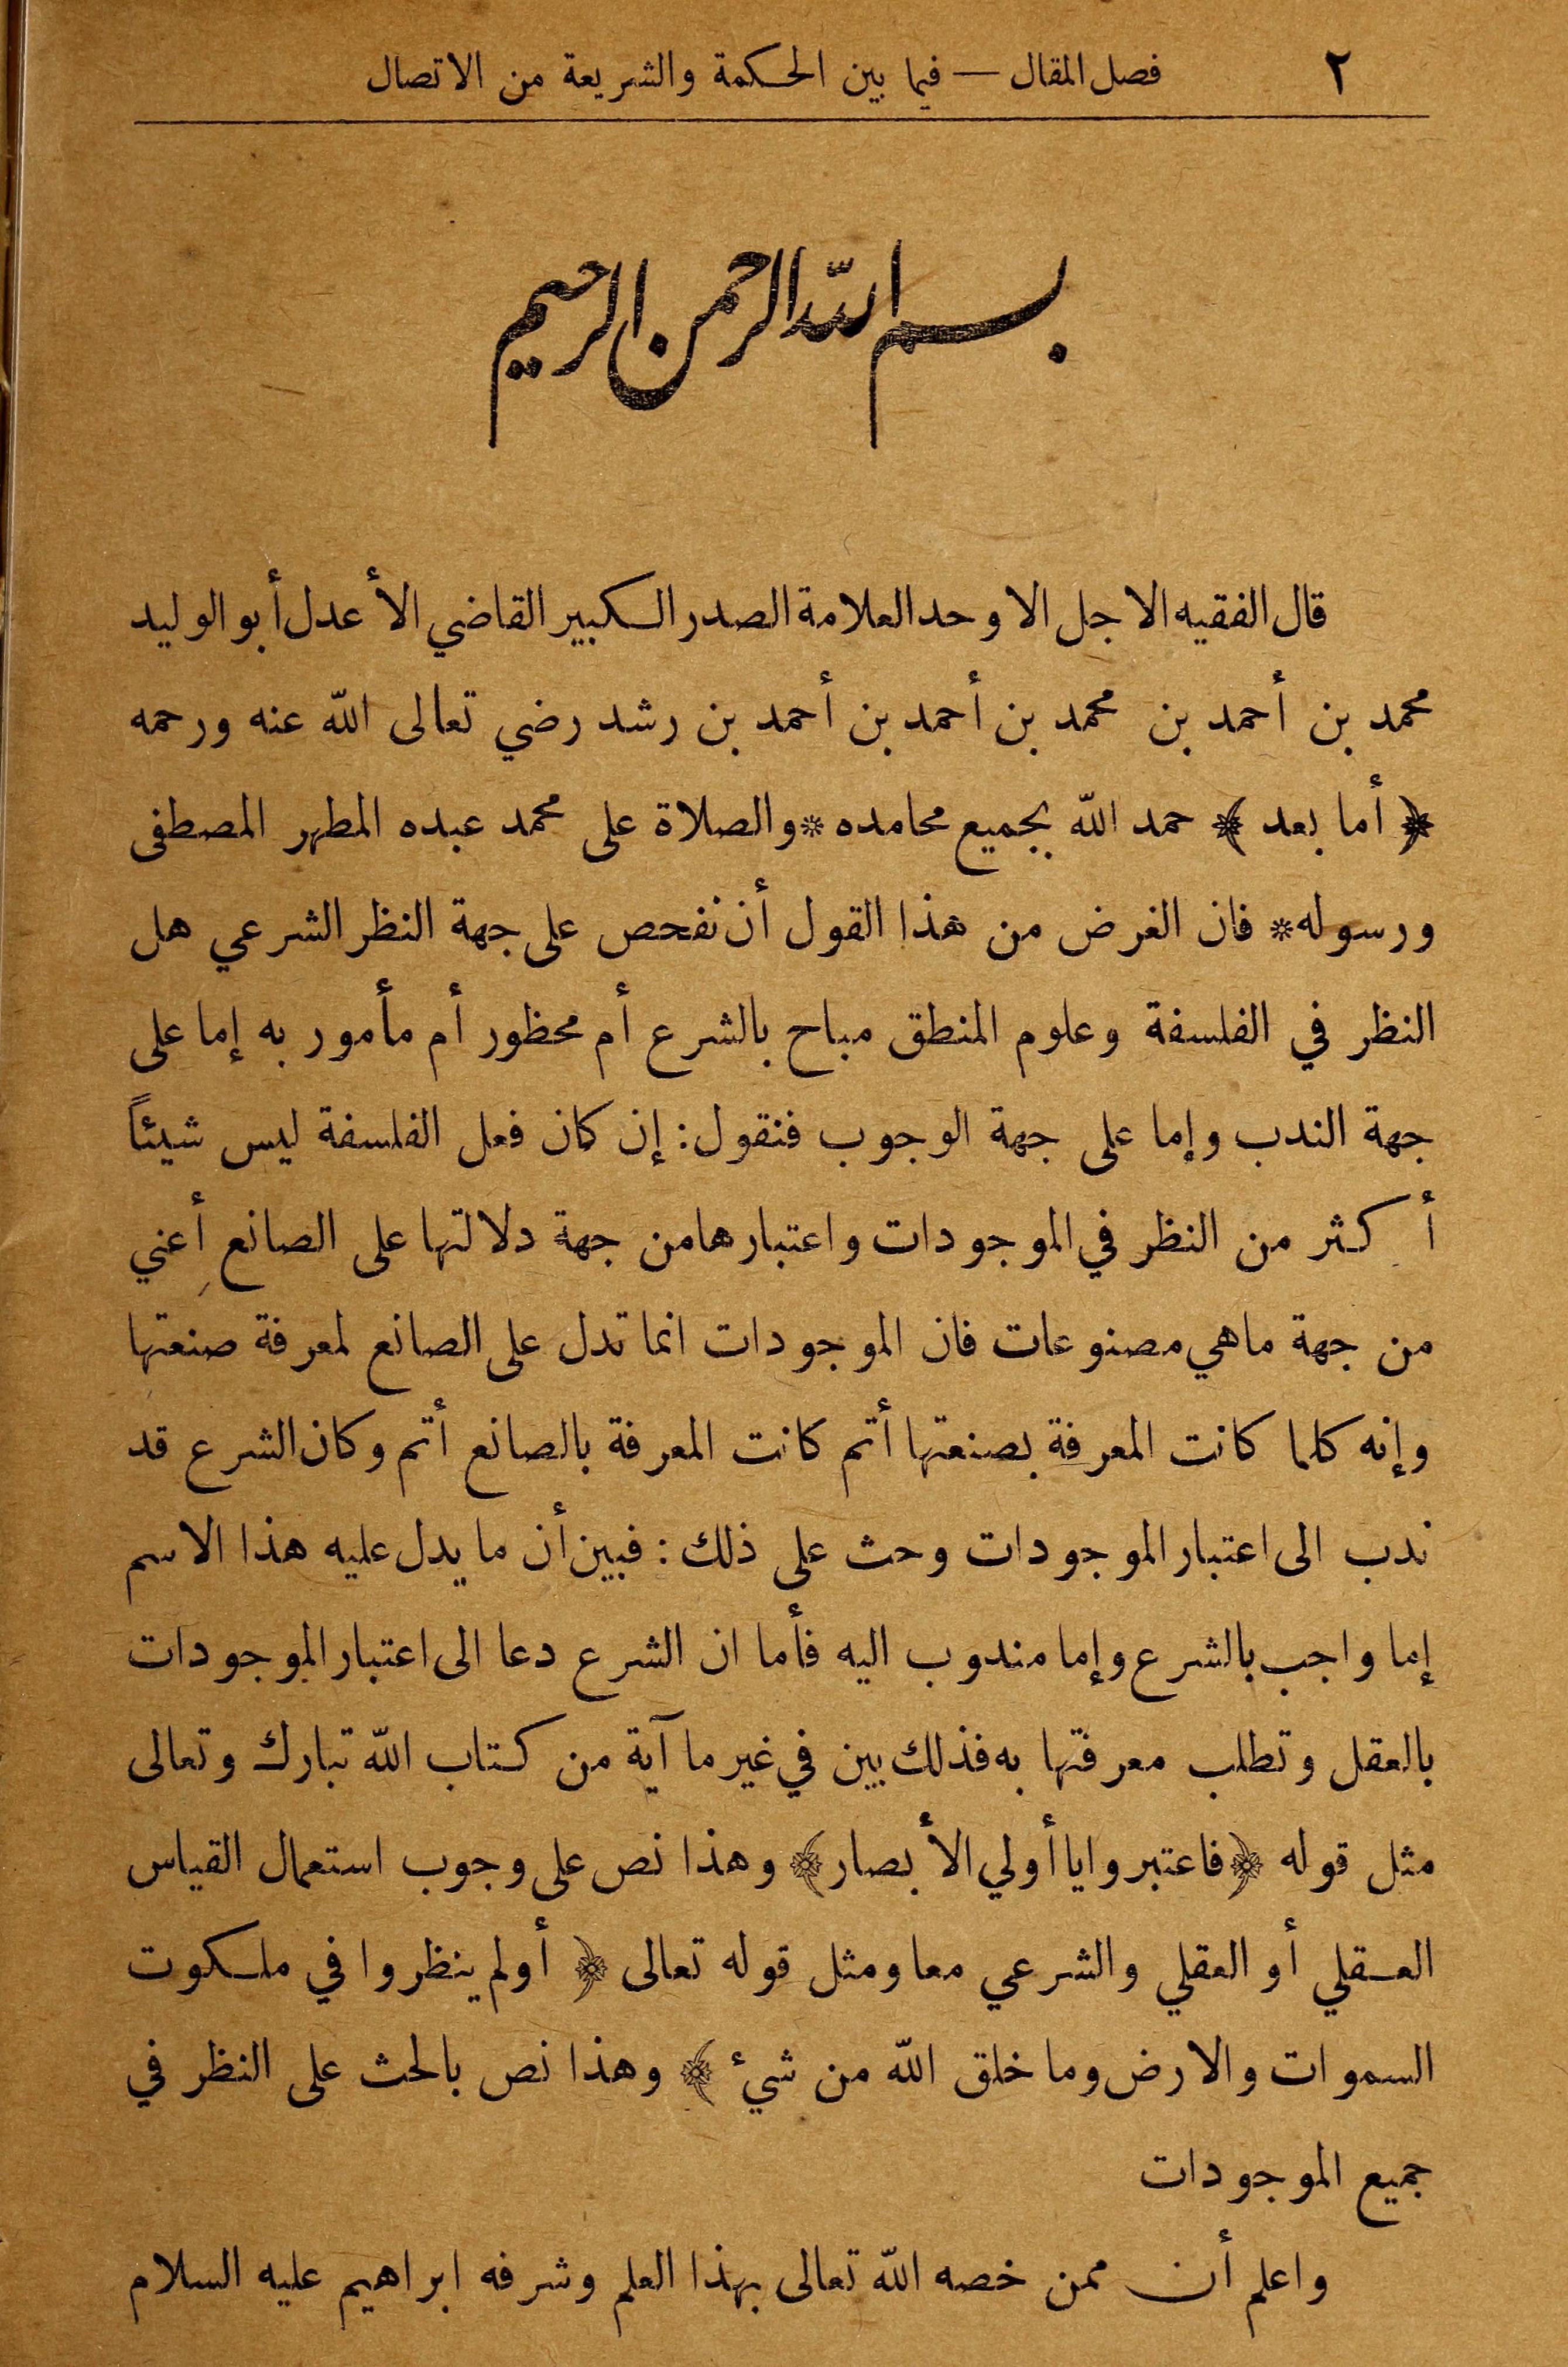 ٢ فصل المقال — فيما بين الحكمة والشريعة من الاتصال
بسم الله الرحمن الرحيم
قال الفقيه الاجل الاوحد العلامة الصدر الكبير القاضي الأعدل أبو الوليد
محمد بن أحمد بن محمد بن أحمد بن أحمد بن رشد رضي تعالى الله عنه ورحمه
﴿ أما بعد ﴾ حمد الله بجميع محامده * والصلاة على محمد عبده المطهر المصطفى
ورسوله * فان الغرض من هذا القول أن نفحص على جهة النظر الشرعي هل
النظر في الفلسفة وعلوم المنطق مباح بالشرع أم محظور أم مأمور به إما على
جهة الندب وإما على جهة الوجوب فنقول: إن كان فعل الفلسفة ليس شيئاً
أكثر من النظر في الموجودات واعتبارها من جهة دلالتها على الصانع أعني
من جهة ما هي مصنوعات فان الموجودات انما تدل على الصانع لمعرفة صنعتها
وإنه كلما كانت المعرفة بصنعتها أتم كانت المعرفة بالصانع أتم وكان الشرع قد
ندب الى اعتبار الموجودات وحث على ذلك : فبين أن ما يدل عليه هذا الاسم
إما واجب بالشرع وإما مندوب اليه فأما ان الشرع دعا الى اعتبار الموجودات
بالعقل وتطلب معرفتها به فذلك بين في غير ما آية من كتاب الله تبارك وتعالى
مثل قوله ﴿فاعتبروا يا أولي الأبصار﴾ وهذا نص على وجوب استعمال القياس
العقلي أو العقلي والشرعي معا ومثل قوله تعالى ﴿ أولم ينظروا في ملكوت
السموات والارض وما خلق الله من شيء ﴾ وهذا نص بالحث على النظر في
جميع الموجودات
واعلم أن ممن خصه الله تعالى بهذا العلم وشرفه ابراهيم عليه السلام